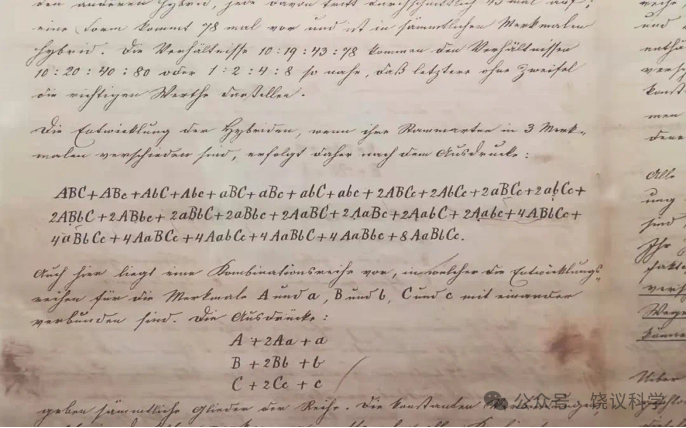 den anderen Hybrid, jede davon tritt durchschnittlich 43 mal auf;
eine Form kommt 78 mal vor und ist in sämmtlichen Merkmalen
hybrid. Die Verhältnisse 10:19:43:78 kommen den Verhältnissen
10:20:40:80 oder 1:2:4:8 so nahe, daß letztere ohne Zweifel
die richtigen Werthe darstellen.
Die Entwicklung der Hybriden, wenn ihre Stammarten in 3 Merk-
malen verschieden sind, erfolgt daher nach dem Ausdrucke:
ABC+ABc+AbC+Abc+aBC+aBc+abC+abc+2ABCc+2AbCc+2aBCc+2abCc+
2ABbC+2ABbc+2aBbC+2aBbc+2AaBC+2AaBc+2AabC+2Aabc+4ABbCc+
4aBbCc+4AaBCc+4AabCc+4AaBbC+4AaBbc+8AaBbCc.
Auch hier liegt eine Kombinationsreihe vor, in welcher die Entwicklungs-
reihen für die Merkmale A und a, B und b, C und c mit einander
verbunden sind. Die Ausdrücke:
A+2Aa+a
B+2Bb+b
C+2Cc+c
geben sämmtliche Glieder der Reihe. Die konstanten
公众号 饶议科学